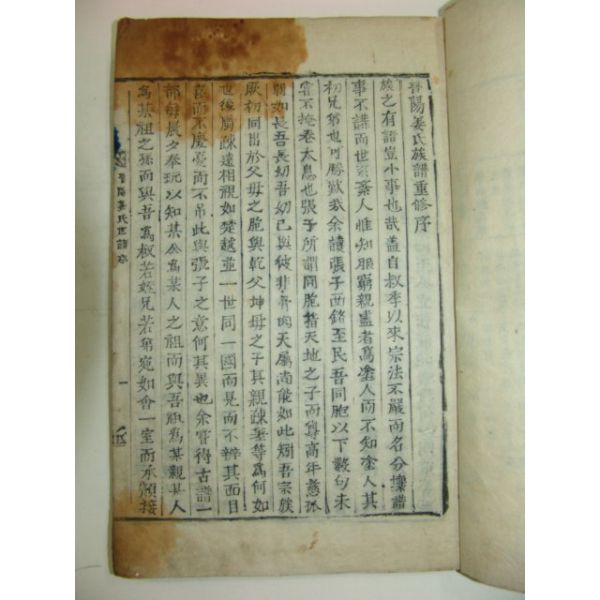 晋陽姜氏族譜重修序
族之有譜豈小事也哉盖自叔季以來宗法不嚴而名分壞譜
事不講而世系紊人惟知服窮親盡者爲塗人而不知塗人其
初兄弟也可勝歎哉余讀張子西銘至民吾同胞以下數句未
甞不掩卷太息也張子所謂同胞指天地之子而尊高年慈孤
弱如長吾長幼吾幼已與彼非有的天屬尚能如此矧吾宗族
厥初同出於父母之胞與乾父坤母之子其親踈差等爲何如
世後屬踈遠相視如楚越並一世同一國而見而不辨其面目
喜而不慶憂而不吊此與張子之意何其異也余甞得古譜一
部每晨夕奉玩以知某公爲某人之祖而與吾祖爲某親某人
爲某祖之孫而與吾爲叔若姪兄若弟宛如會一室而承顔接
晋陽姜氏世譜序
一